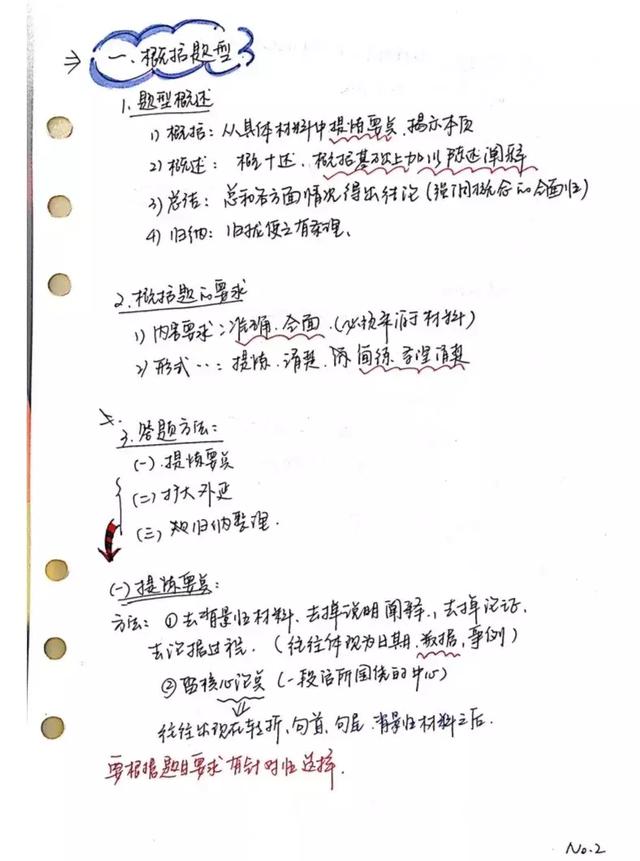 ⇒ 一、概括题型
1. 题型概述
1) 概括：从具体材料中提炼要点、揭示本质
2) 概述：概+述、概括基础上加以陈述阐释
3) 总结：总和各方面情况得出结论(强调概念的全面性)
4) 归纳：归拢使之有条理、
2. 概括题的要求
1) 内容要求：准确、全面、(必须来源于材料)
2) 形式…：提炼、清楚、简练、条理清楚
3. 答题方法：
(一)、提炼要点
(二) 扩大外延
(三) 归纳整理.
(一) 提炼要点：
方法：① 去背景性材料、去掉说明阐释、去掉论证、
去论据过程、(往往体现为日期、数据、事例)
② 留核心论点 (一段话所围绕的中心)
往往出现在转折、句首、句尾、背景性材料之后.
要根据题目要求有针对性选择.
No.2